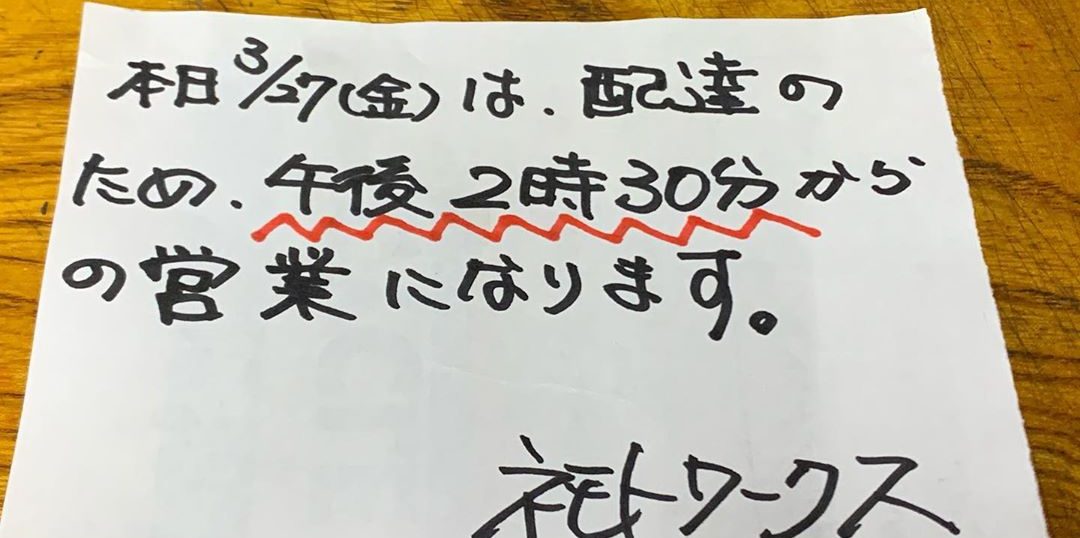 本日3/27(金)は、配達の
ため、午後2時30分から
の営業になります。
ネモトワークス